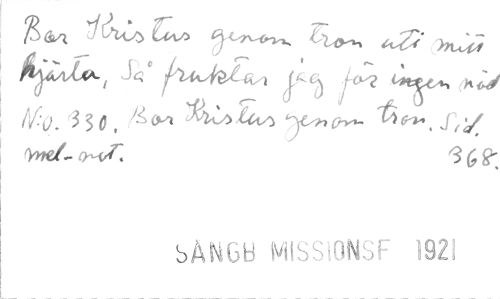 Bor Kristus genom tron uti mitt
hjärta, Så fruktar jag för ingen nöd
N:o. 330. Bor Kristus genom tron. Sid.
mel-not. 368.
SÅNGB MISSIONSF 1921